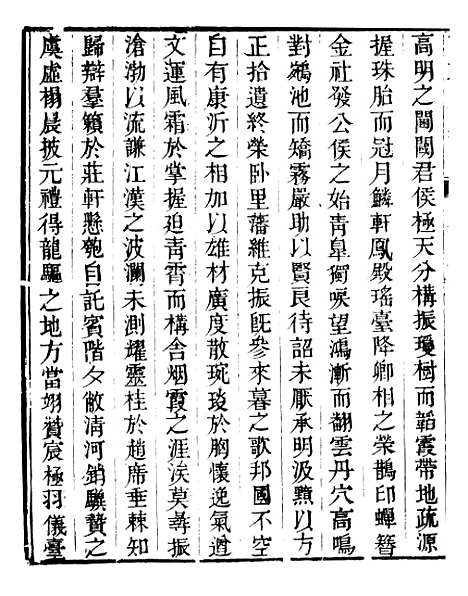 高明之閥閱君侯極天分構振瓊樹而韜霞帶地疏源
握珠胎而冠月鱗軒鳳殿瑤臺降卿相之榮鵲印蟬簪
金社發公侯之始青皐獨唳望鴻漸而翻雲丹穴高鳴
對鵷池而矯霧嚴助以賢良待詔未厭承明汲黯以方
正拾遺終榮卧里藩維克振旣參來暮之歌邦國不空
自有康沂之相加以雄材廣度散琬琰於胸懷逸氣遒
文運風霜於掌握迫青霄而構舍烟霞之涯涘莫尋振
滄渤以流謙江漢之波瀾未測耀靈桂於趙席垂棘知
歸辯羣籟於莊軒懸匏自託賓階夕敞清河銷驥贊之
虞虛榻晨披元禮得龍驅之地方當翊贊宸極羽儀臺